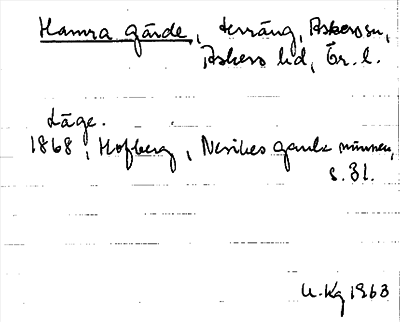 Hamra gärde, terräng, Askersu,
Askers hd, Ör. l.
Läge.
1868, Hofberg, Nerikes gamla minnen,
s. 31.
U. Kg 1963